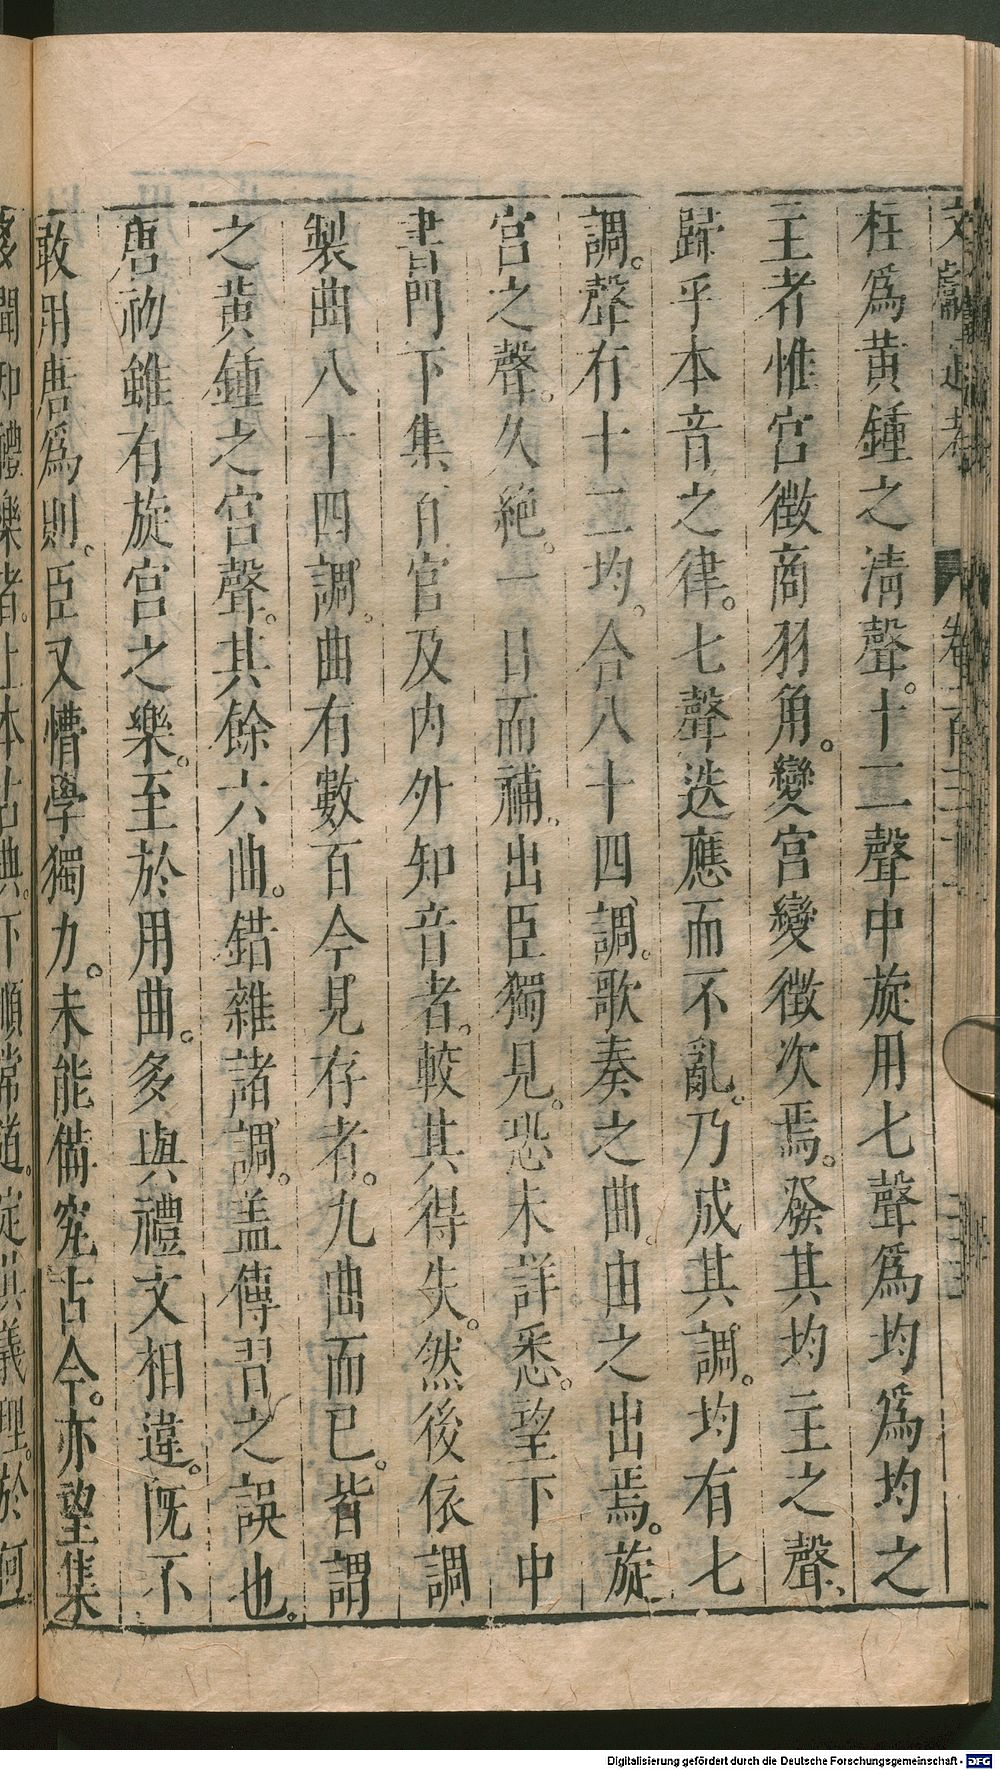 文獻通考 卷一百三十一
柱爲黃鍾之清聲。十二聲中旋用七聲爲均爲均之
主者惟宮徵商羽角。變宮變徵次焉。發其均主之聲、
歸乎本音之律。七聲迭應而不亂。乃成其調。均有七
調。聲有十二均。合八十四調。歌奏之曲。由之出焉。旋
宮之聲。久絕。一日而補、出臣獨見。恐未詳悉。望下中
書門下集百官及內外知音者。較其得失。然後依調
製曲八十四調。曲有數百今見存者。九曲而已。皆謂
之黃鍾之宮聲。其餘六曲。錯雜諸調。盖傳習之誤也。
唐初雖有旋宮之樂。至於用曲。多與禮文相違。旣不
敢用唐爲則。臣又懵學獨力。未能備究古今。亦望集
多聞知禮樂者。上本古典。下順常道。定其義理。於何
Digitalisierung gefördert durch die Deutsche Forschungsgemeinschaft - DFG